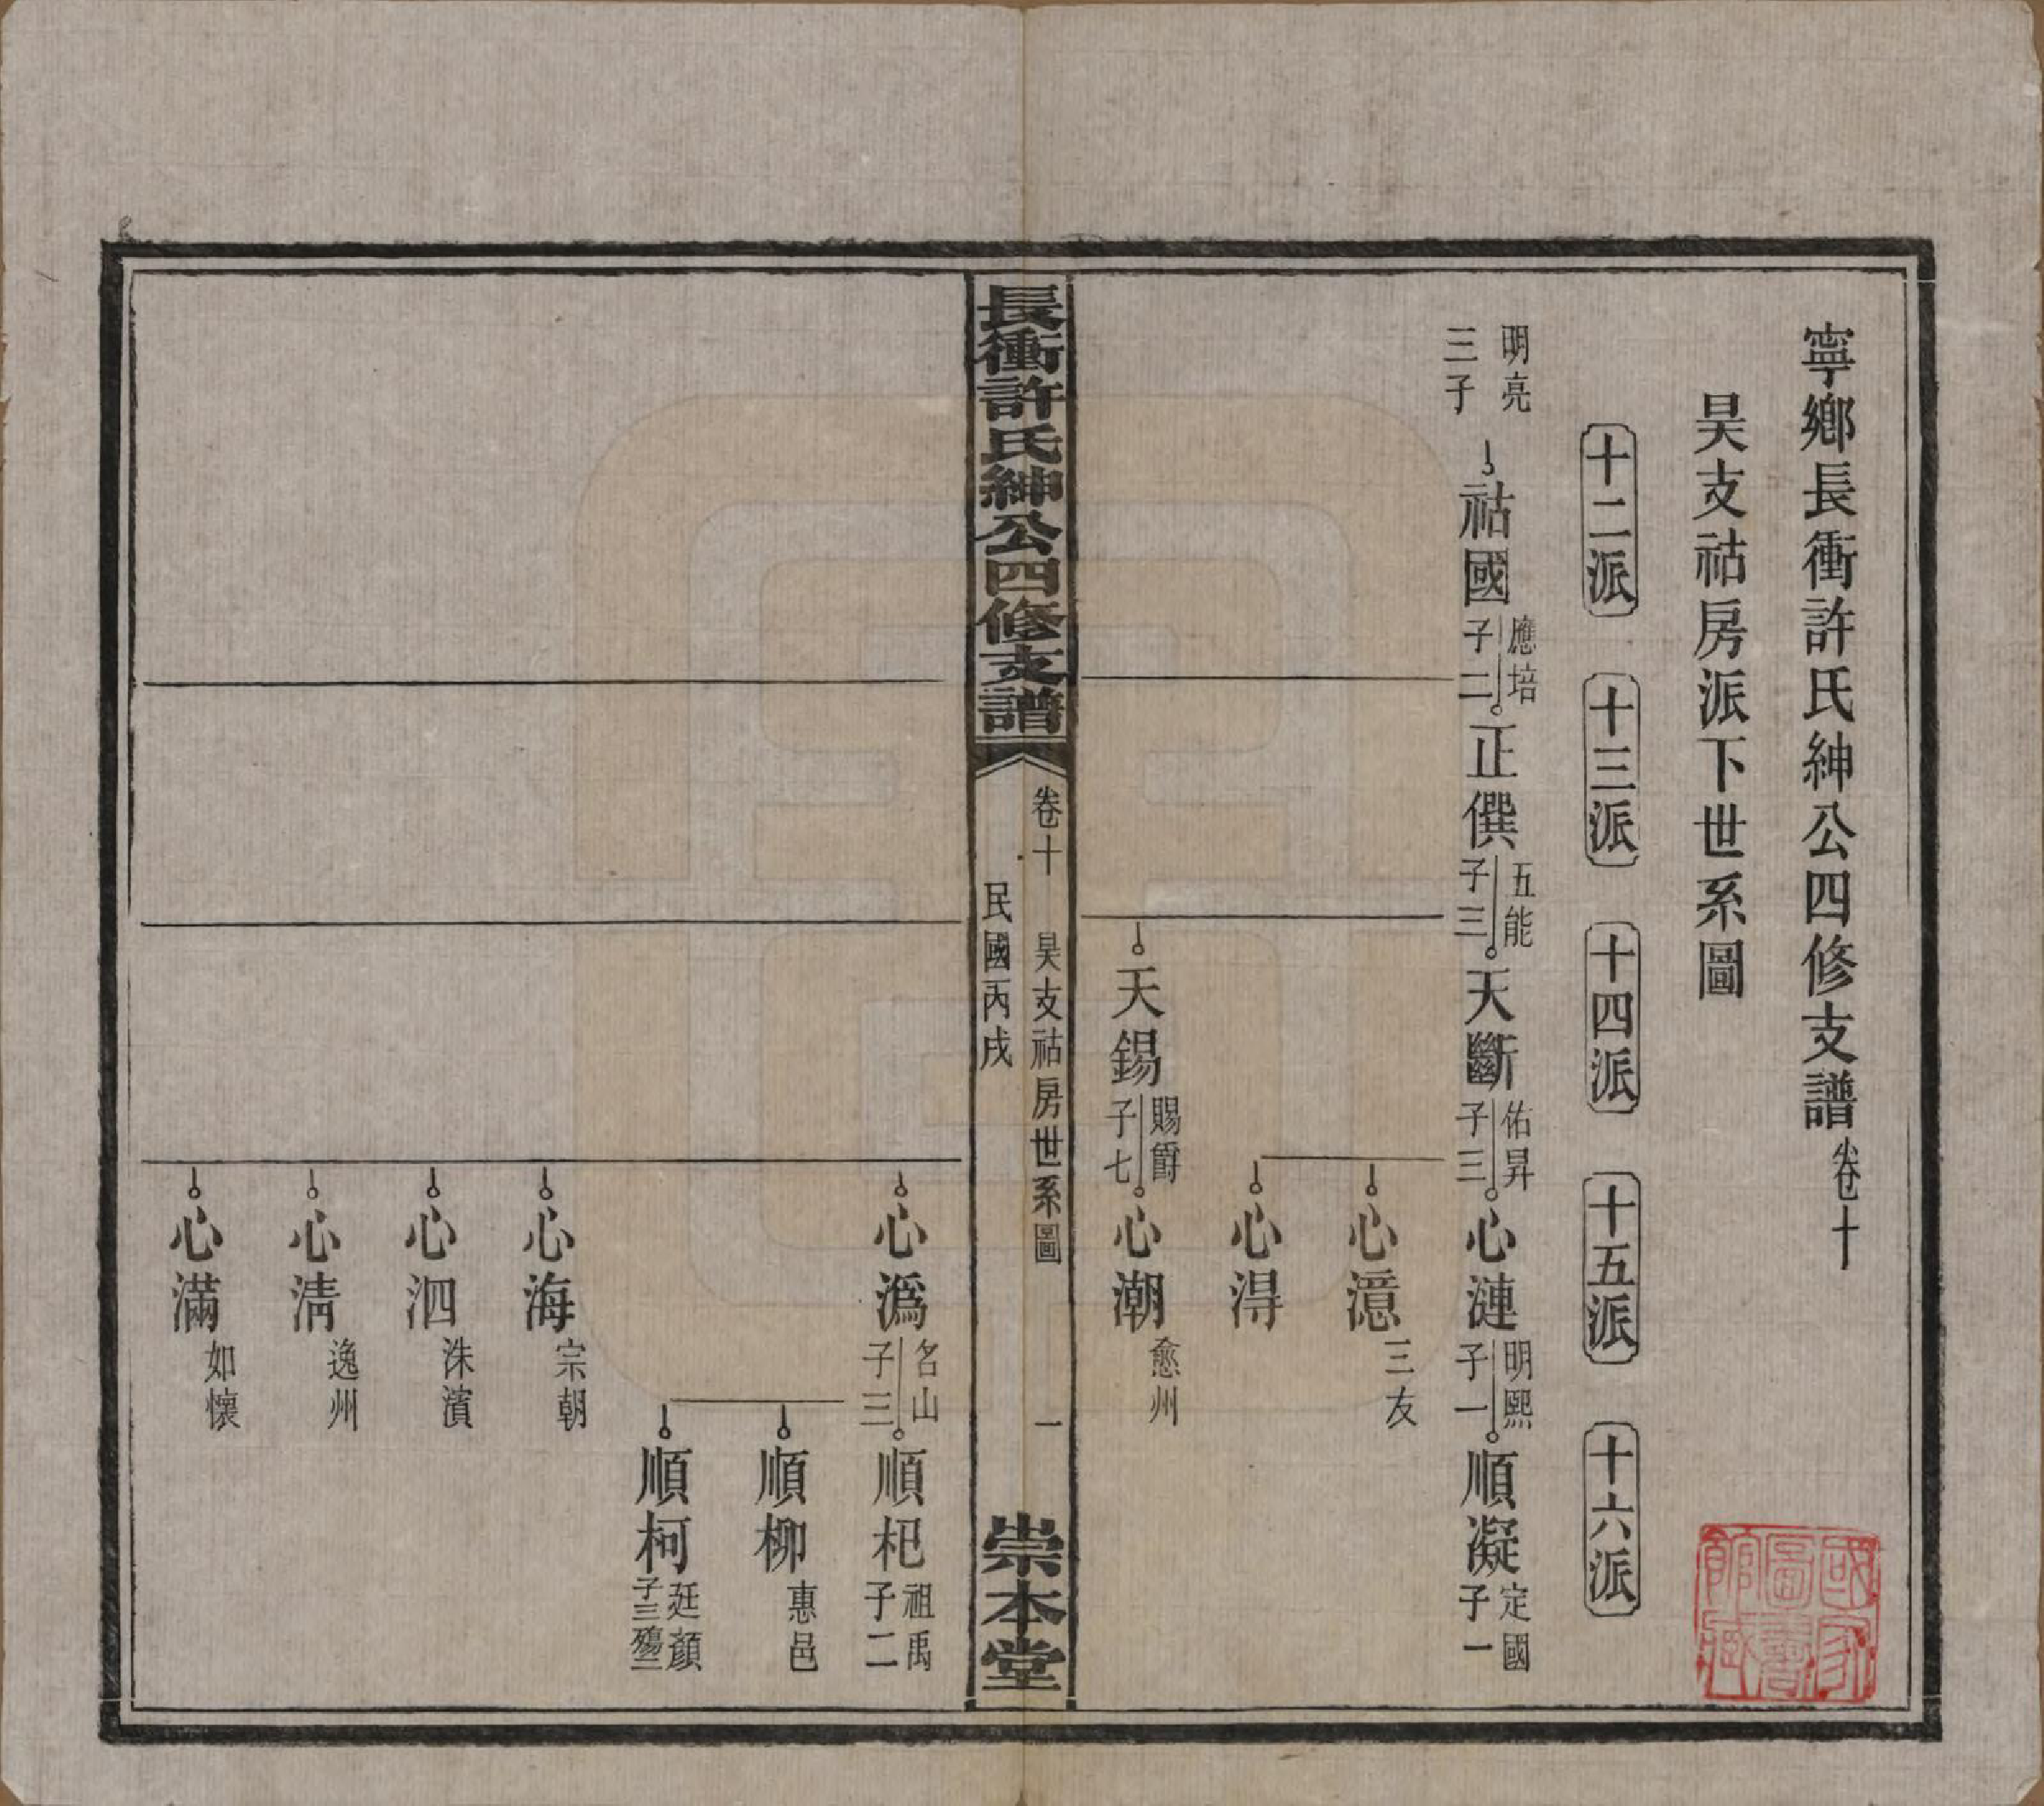 寧鄉長衝許氏紳公四修支譜卷十
昊支祜房派下世系圖
十二派
十三派
十四派
十五派
十六派
明亮
三子
祜國
應培
子二
正僎
五能
子三
天斷
佑昇
子三
心漣
明熙
子一
順凝
定國
子一
心澺
三友
心淂
天錫
賜爵
子七
心潮
愈州
長衝許氏紳公四修支譜
卷十
昊支祜房世系圖
一
民國丙戌
崇本堂
心潙
名山
子三
順杞
祖禹
子二
順柳
惠邑
順柯
廷顏
子三殤二
心海
宗朝
心泗
洙濱
心清
逸州
心滿
如懷
國家
圖書
館藏